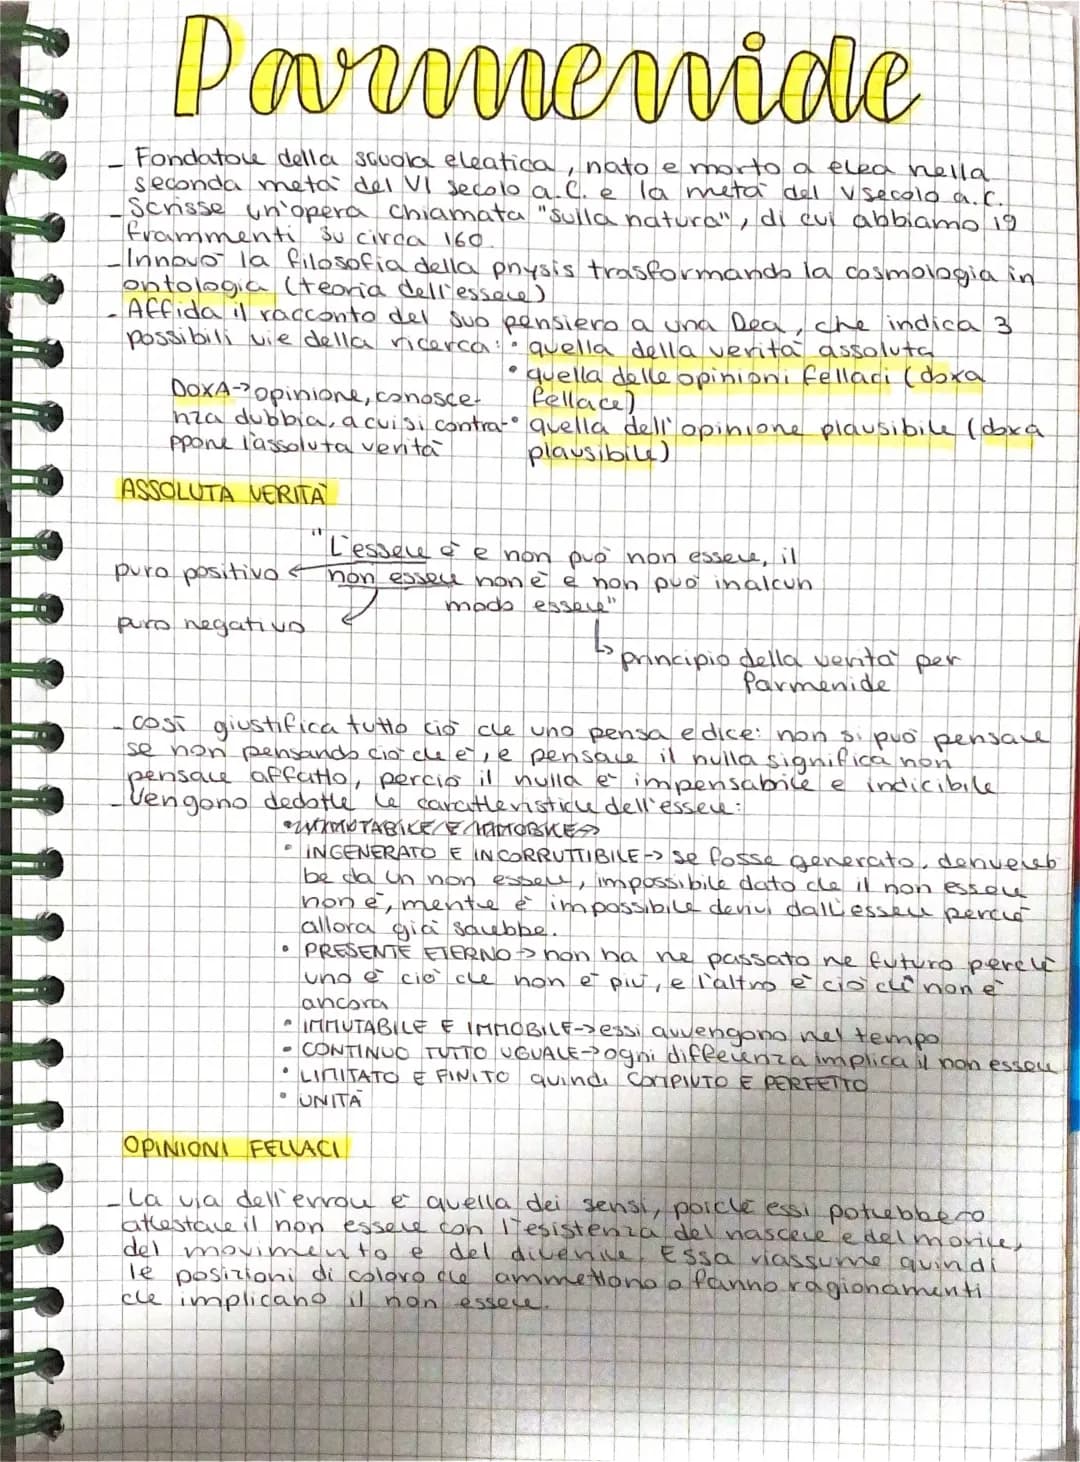 Parmenide
- Fondatore della scuola eleatica, nato e morto a elea nella
seconda metà del VI secolo a.C. e la metà del V secolo a.C.
- Scrisse un'opera chiamata "sulla natura", di cui abbiamo 19
frammenti su circa 160.
- Innovò la filosofia della physis trasformando la cosmologia in
ontologia (teoria dell'essere)
- Affida il racconto del suo pensiero a una Dea, che indica 3
possibili vie della ricerca: • quella della verità assoluta
• quella delle opinioni fellaci (doxa
fellace)
• quella dell'opinione plausibile (doxa
plausibile)
DOXA → opinione, conosce-
nza dubbia, a cui si contra-
ppone l'assoluta verità
ASSOLUTA VERITÀ
"L'essere è e non può non essere, il
puro positivo ← non essere non è e non può in alcun
modo essere"
puro negativo
↳ principio della verità per
Parmenide
- così giustifica tutto ciò che uno pensa e dice: non si può pensare
se non pensando ciò che è, e pensare il nulla significa non
pensare affatto, perciò il nulla è impensabile e indicibile
- Vengono dedotte le caratteristiche dell'essere:
• IMMUTABILE E IMMOBILE →
• INGENERATO E INCORRUTTIBILE → se fosse generato, deriverebb
be da un non essere, impossibile dato che il non essere
non è, mentre è impossibile derivi dall'essere perché
allora già sarebbe.
• PRESENTE ETERNO → non ha ne passato ne futuro perché
uno è ciò che non è più, e l'altro è ciò che non è
ancora
• IMMUTABILE E IMMOBILE → essi avvengono nel tempo
• CONTINUO TUTTO UGUALE → ogni differenza implica il non essere
• LIMITATO E FINITO quindi COMPIUTO E PERFETTO
• UNITÀ
OPINIONI FELLACI
- La via dell'errore è quella dei sensi, poiché essi potrebbero
attestare il non essere con l'esistenza del nascere e del morire,
del movimento e del divenire. Essa riassume quindi
le posizioni di coloro che ammettono o fanno ragionamenti
che implicano il non essere.